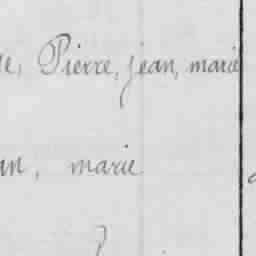 Pierre, jean, marie
marie